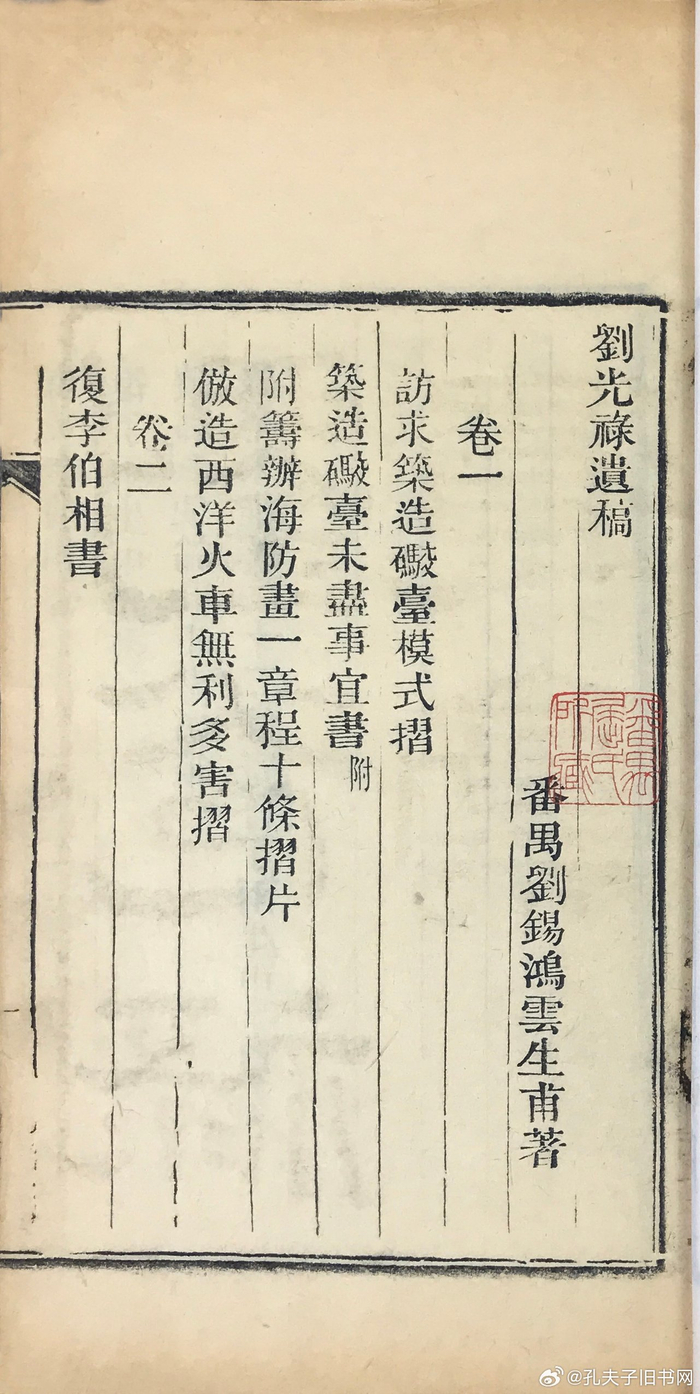 劉光祿遺稿
番禺劉錫鴻雲生甫著
卷一
訪求築造礮臺模式摺
築造礮臺未盡事宜書附
附籌辦海防畫一章程十條摺片
倣造西洋火車無利多害摺
卷二
復李伯相書
@孔夫子旧书网